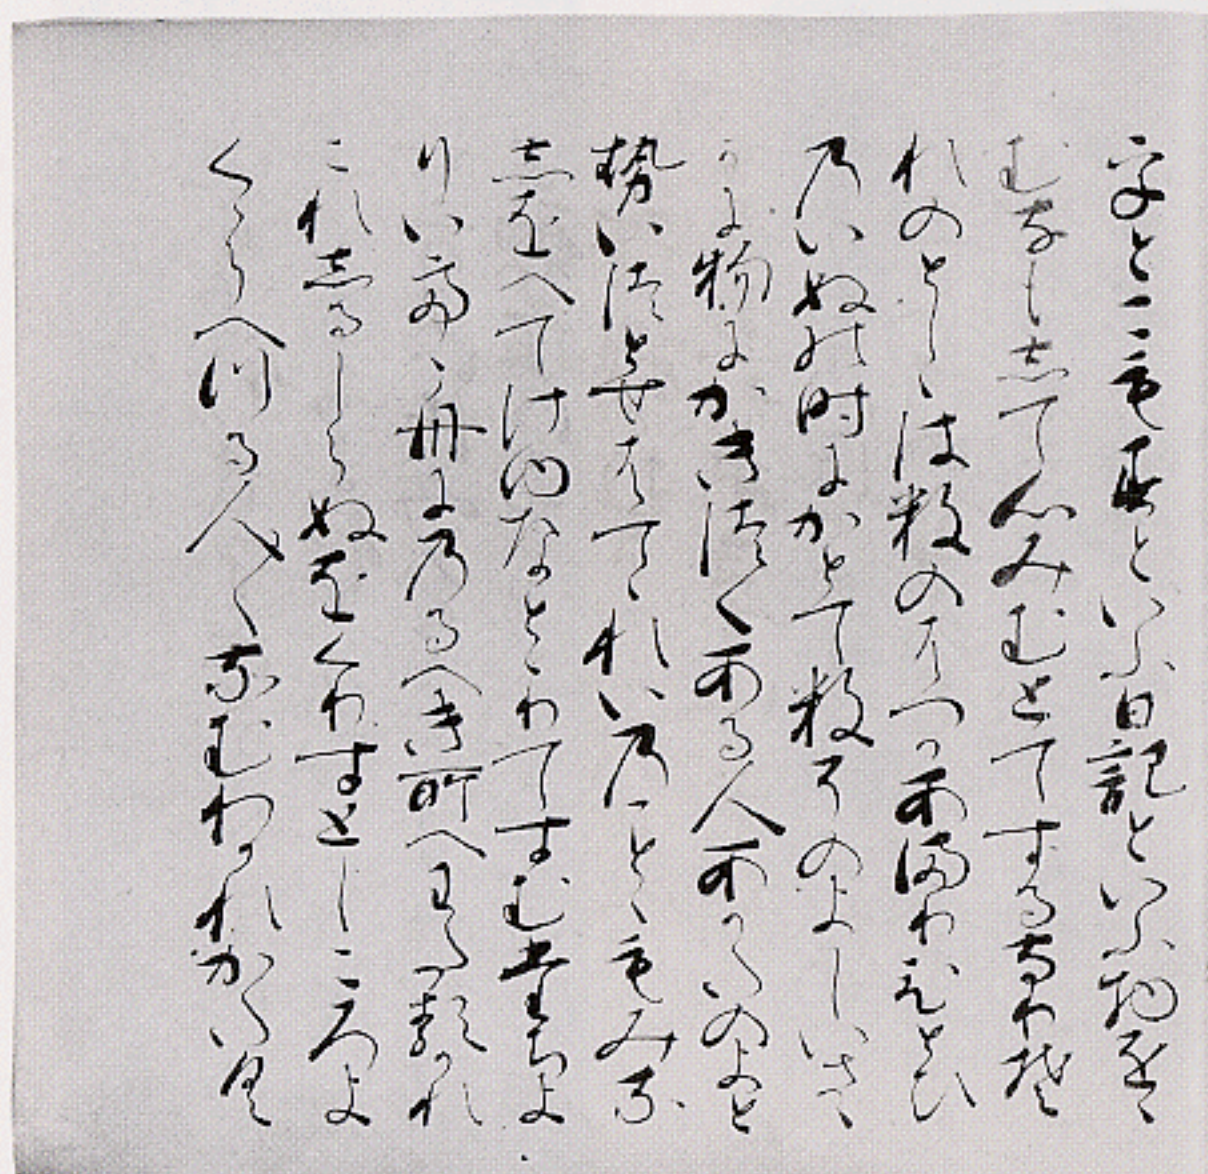 乎とこもすといふ日記といふ物をゝ
むなもして心みむとてするなりそ
れのとしゝはすのはつかあまりひとひ
のいぬの時にかとてすそのよしいさゝ
かに物にかきつくある人あかたのよと
せいつとせはてゝれいのことゝもみな
しをへてけゆなとゝりてすむたちよ
りいてゝ舟にのるへき所へわたるかれ
これしるしらぬをくりすとしころよ
くくらへつる人〱なむわかれかたく